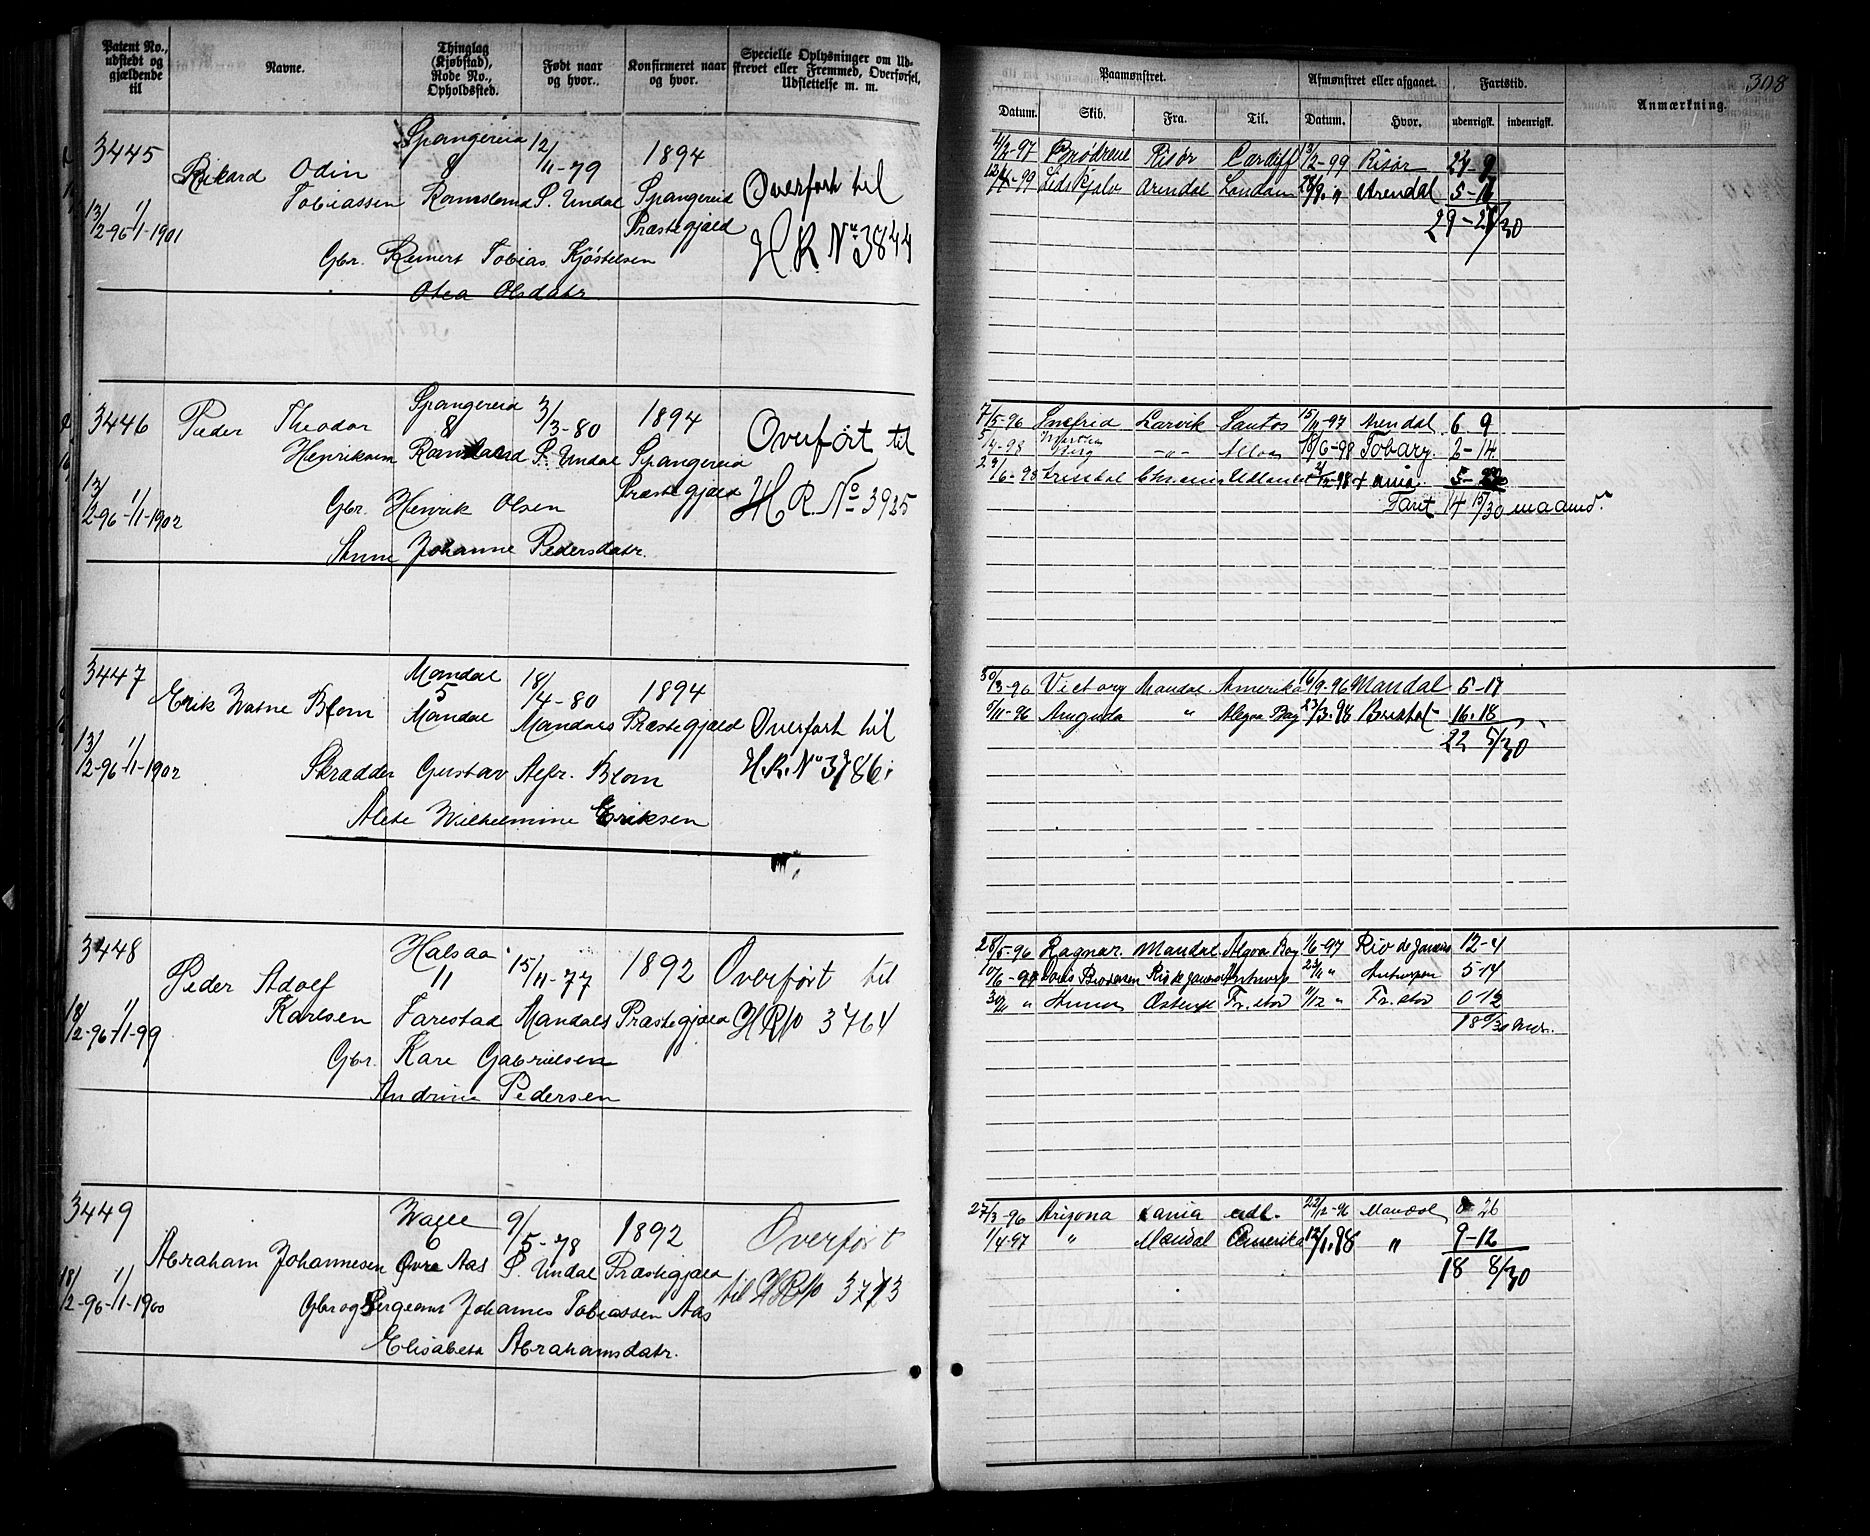 Patent No., udstedt og gjældende til
Navne.
Thinglag (Kjøbstad), Rode No., Opholdssted.
Født naar og hvor.
Konfirmeret naar og hvor.
Specielle Oplysninger om Udskrevet eller Fremmed, Overførsel, Udslettelse m. m.
Paamønstret.
Afmønstret eller afgaaet.
Fartstid.
Anmærkning.
308
Datum.
Skib.
Fra.
Til.
Datum.
Hvor.
udenrigsk.
indenrigsk.
3445
Rikard Odin
Tobiassen
Spangereid
8
12/11-79
S. Undal
1894
Spangereid
Præstegjæld
Overført til
H.R. No 3844
13/2-96-1/1-1901
Gbr. Reinert Tobias Kjøstelsen
Otea Olsdatr
4/2-97 Brødrene Risør Cardiff 13/2-99 Risør
Arendal London Arendal
29-27/30
3446
Peder Theodor
Henriksen
Spangereid
8
3/3-80
S. Undal
1894
Spangereid
Præstegjæld
Overført til
H.R. No 3925
13/2-96-1/1-1902
Gbr. Henrik Olsen
Anne Johanne Pedersdatr.
7/5-96 Snefrid Larvik Santos 15/11-97 Arendal 6 9
5/4-98 -"- Alloa 18/6-98 2-14
Faret 14 15/30 maaned.
3447
Erik Watne Blom
Mandal
5
Mandal
18/4-80
Mandals Præstegjæld
1894
Overført til
H.R. No 3786.
13/2-96-1/1-1902
Skrædder Gustav Alfr. Blom
Alete Wilhelmine Eriksen
30/3-96 Victory Mandal Amerika 16/9-96 Mandal 5-17
5/11-96 " Algoa Bay 23/3.98 Bristol 16.18
22 5/30
3448
Peder Adolf
Karlsen
Halsaa
11
Tarestad
15/11-77
Mandals Præstegjæld
1892
Overført til
HR No 3764
18/2-96-1/1-99
Gbr. Karl Gabrielsen
Andrine Pedersen
28/5-96 Ragnar. Mandal Algoa Bay 1/6-97 Rio de Janeiro 12-4
Rio de Janeiro Antwerp " Antwerpen 5 14
30/11 " Anna Fr.stad 11/12 " Fr.stad 0 12
18 0/30 Mdr.
3449
Abraham Johannesen
Walle
6
Øvre Aas
9/5-78
S. Undal
1892
Præstegjæld
Overført
til HR No 3773
18/2-96-1/1-1900
Gbr og Sergeant Johannes Tobiassen Aas
Elisabeta Abrahamsdatr.
27/3-96 Arizona Xania udl. 22/12-96 Mandal 8 26
1/4-97 " Mandal Amerika 12/1.98 " 9-12
18 8/30